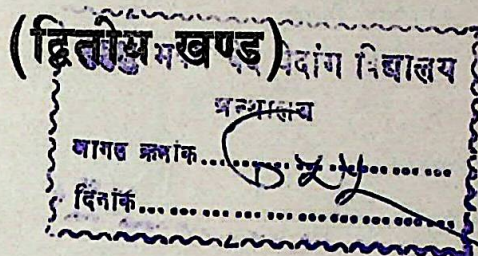 (द्वितीय खण्ड)
वेदांग विद्यालय
ग्रन्थालय
आगत क्रमांक..................
दिनांक..................